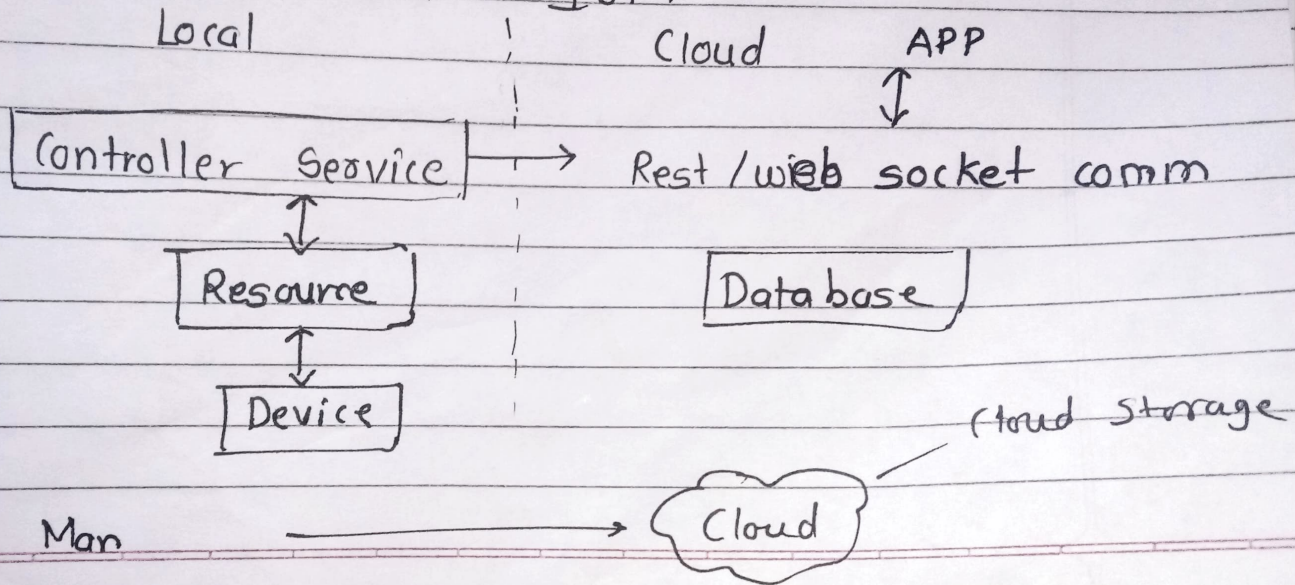 Local
Cloud
APP
Controller Service
Rest / web socket comm
Resource
Database
Device
Cloud Storage
Man
Cloud